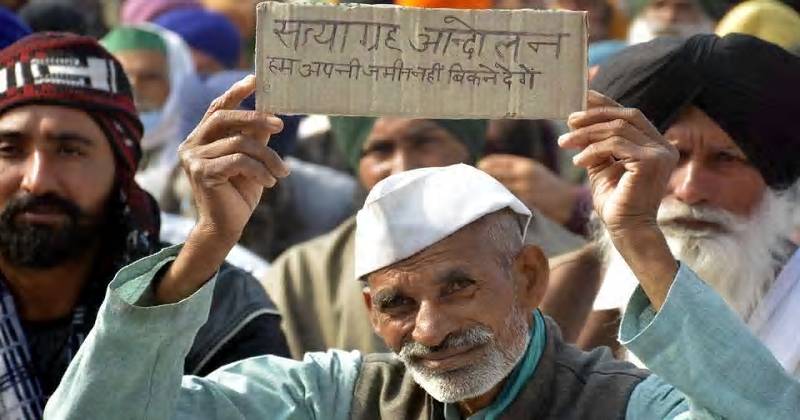 सत्याग्रह आन्दोलन
हम अपनी जमीन नहीं बिकने देगें